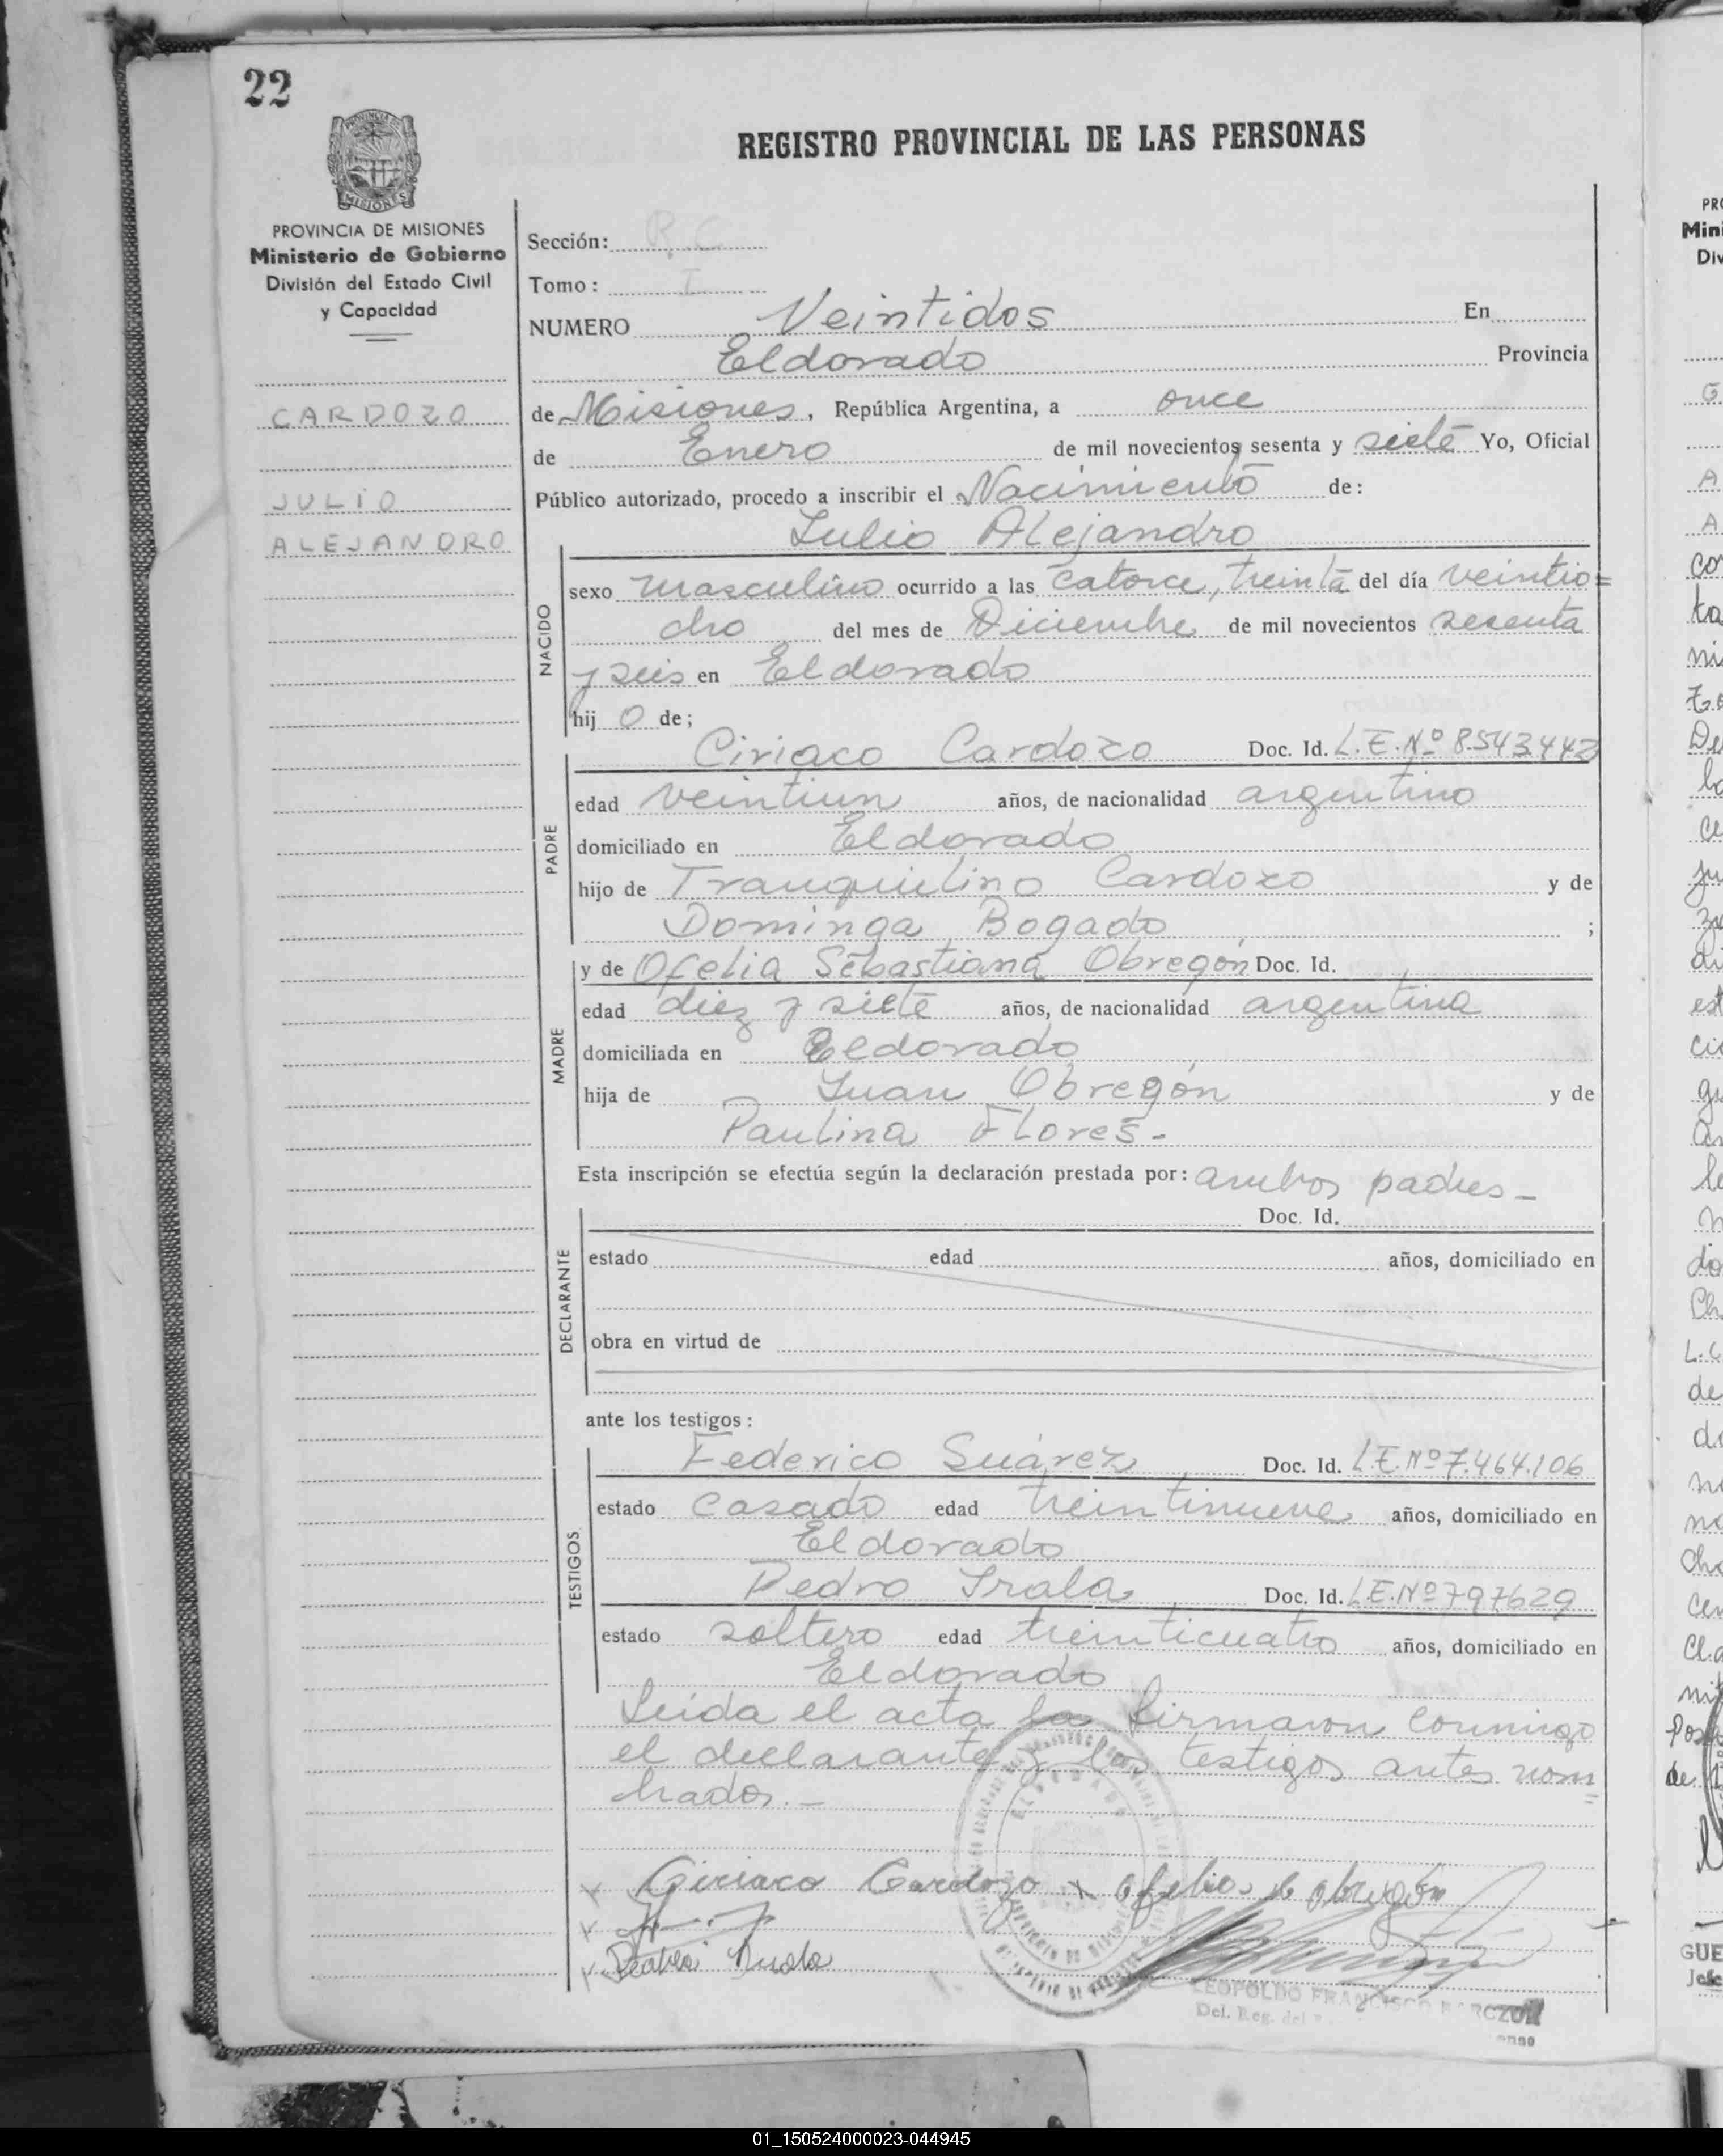 22
REGISTRO PROVINCIAL DE LAS PERSONAS
PROVINCIA DE MISIONES
Ministerio de Gobierno
División del Estado Civil
y Capacidad
CARDOZO
JULIO
ALEJANDRO
Sección: R.C.
Tomo: I
NUMERO Veintidos En
Eldorado Provincia
de Misiones, República Argentina, a once
de Enero de mil novecientos sesenta y siete Yo, Oficial
Público autorizado, procedo a inscribir el Nacimiento de:
Julio Alejandro
NACIDO
sexo masculino ocurrido a las catorce, treinta del día veintio=
cho del mes de Diciembre de mil novecientos sesenta
y seis en Eldorado
hij o de;
PADRE
Ciriaco Cardozo Doc. Id. L.E.Nº 8.543.443
edad veintiun años, de nacionalidad argentino
domiciliado en Eldorado
hijo de Tranquilino Cardozo y de
Dominga Bogado ;
MADRE
y de Ofelia Sebastiana Obregón Doc. Id.
edad diez y siete años, de nacionalidad argentina
domiciliada en Eldorado
hija de Juan Obregón y de
Paulina Flores.-
Esta inscripción se efectúa según la declaración prestada por: ambos padres-
DECLARANTE
Doc. Id.
estado edad años, domiciliado en
obra en virtud de
ante los testigos:
TESTIGOS
Federico Suárez Doc. Id. L.E.Nº7.464.106
estado casado edad treintinueve años, domiciliado en
Eldorado
Pedro Irala Doc. Id. L.E.Nº797629
estado soltero edad treinticuatro años, domiciliado en
Eldorado
Leida el acta la firmaron conmigo
el declarante y los testigos antes nom
brados.-
Ciriaco Cardozo x Ofelia S. Obregón
LEOPOLDO FRANCISCO
Del. Reg. del
01_150524000023-044945